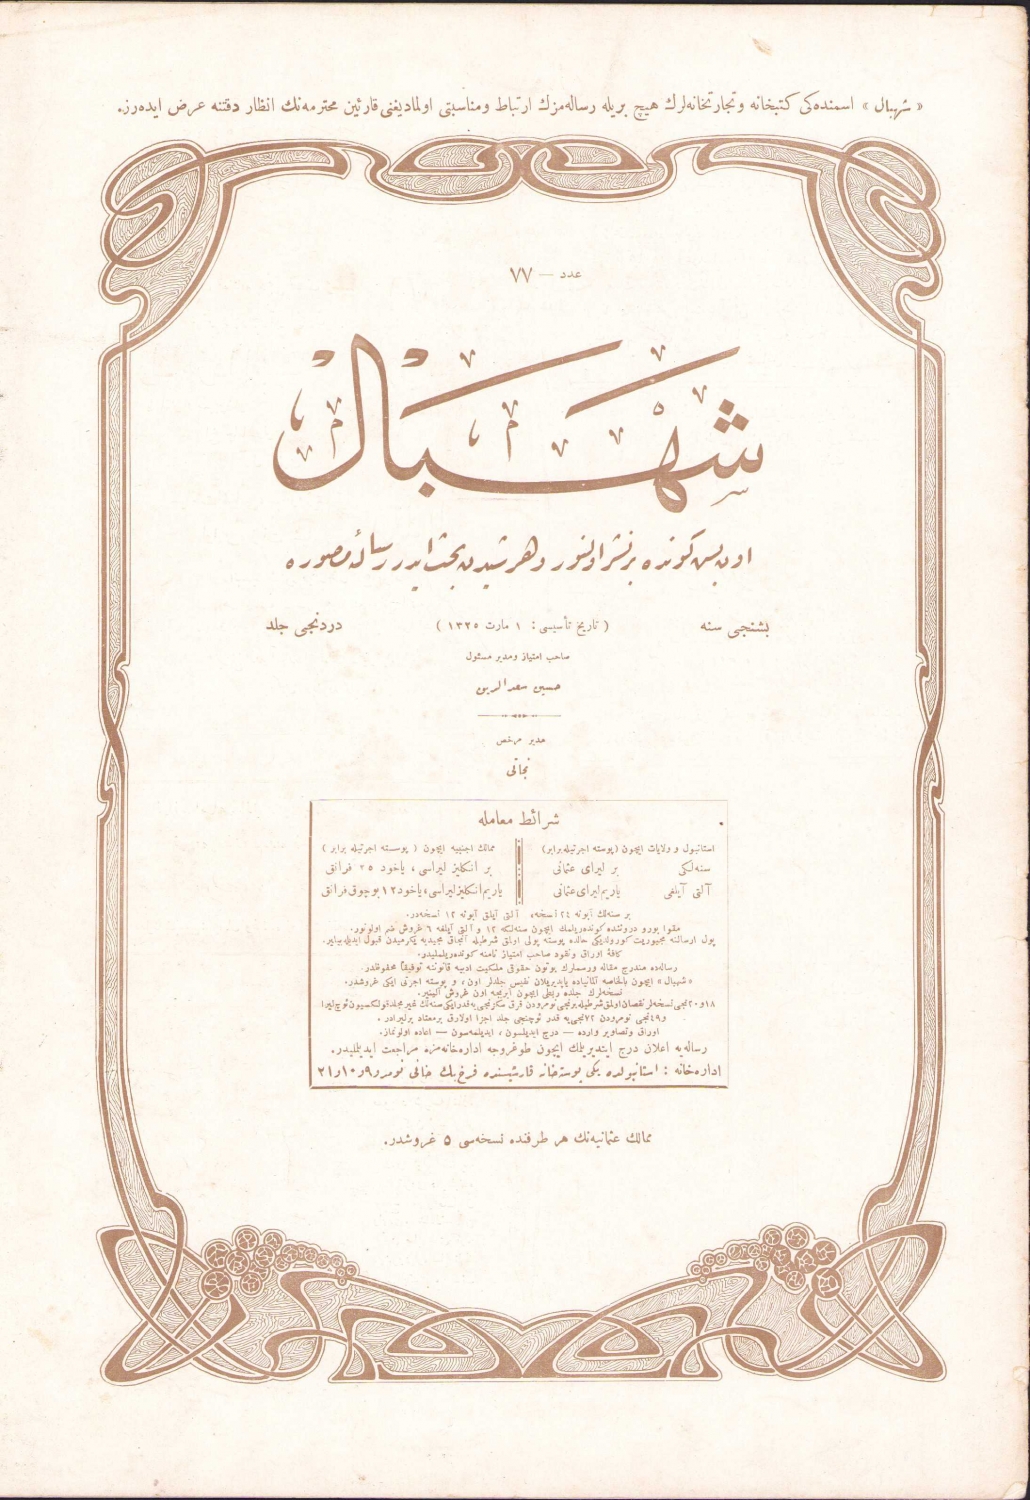 « شهبال » اسمنده‌كی كتبخانه و تجارتخانه‌لرك هیچ بریله رساله‌مزك ارتباط و مناسبتی اولمادیغنی قارئین محترمه‌نك انظار دقتنه عرض ایده‌رز.
عدد — ٧٧
شهبال
اون بش كونده بر نشر اولنور و هر شیدن بحث ایدر رسالهٔ مصوره
بشنجی سنه ( تاریخ تأسیسی : ١ مارت ١٣٢٥ ) دردنجی جلد
صاحب امتیاز و مدیر مسئول
حسین سعدالدین
مدیر مرخص
نجاتی
شرائط معامله
استانبول و ولایات ایچون (پوسته اجرتیله برابر)
سنه‌لكی بر لیرای عثمانی
آلتی آیلغی یاریم لیرای عثمانی
ممالك اجنبیه ایچون ( پوسته اجرتیله برابر )
بر انكلیز لیراسی ، یاخود ٢٥ فرانق
یاریم انكلیز لیراسی ، یاخود ١٢ بوچوق فرانق
بر سنه‌لك آبونه ٢٤ نسخه، آلتی آیلق آبونه ١٢ نسخه‌در.
مقوا بورو دروننده كوندریلمك ایچون سنه‌لكه ١٢ و آلتی آیلغه ٦ غروش ضم اولونور.
پول ارسالنه مجبوریت كورولدیكی حالده پوسته پولی اولق شرطیله آنجاق مجیدیه یكرمیدن قبول ایدیله‌بیلیر.
كافهٔ اوراق و نقود صاحب امتیاز نامنه كوندریلملیدر.
رساله‌ده مندرج مقاله و رسملرك بوتون حقوقی ملكیت ادبیه قانوننه توفیقاً محفوظدر.
« شهبال » ایچون بالخاصه آلمانیاده یاپدیریلان نفیس جلدلر اون ، و پوسته اجرتی ایكی غروشدر.
نسخه‌لرك جلده ربطی ایچون آیریجه اون غروش آلینیر.
اوراق و تصاویر وارده — درج ایدیلسون ، ایدیلمه‌سون — اعاده اولونماز.
رساله‌یه اعلان درج ایتدیرمك ایچون طوغروجه اداره‌خانه‌مزه مراجعت ایدیلملیدر.
اداره‌خانه : استانبولده یكی پوسته‌خانه قارشیسنده فرخ بك خانی نومرو ٩ و ١٠ و ٢١
ممالك عثمانیه‌نك هر طرفنده نسخه‌سی ٥ غروشدر.